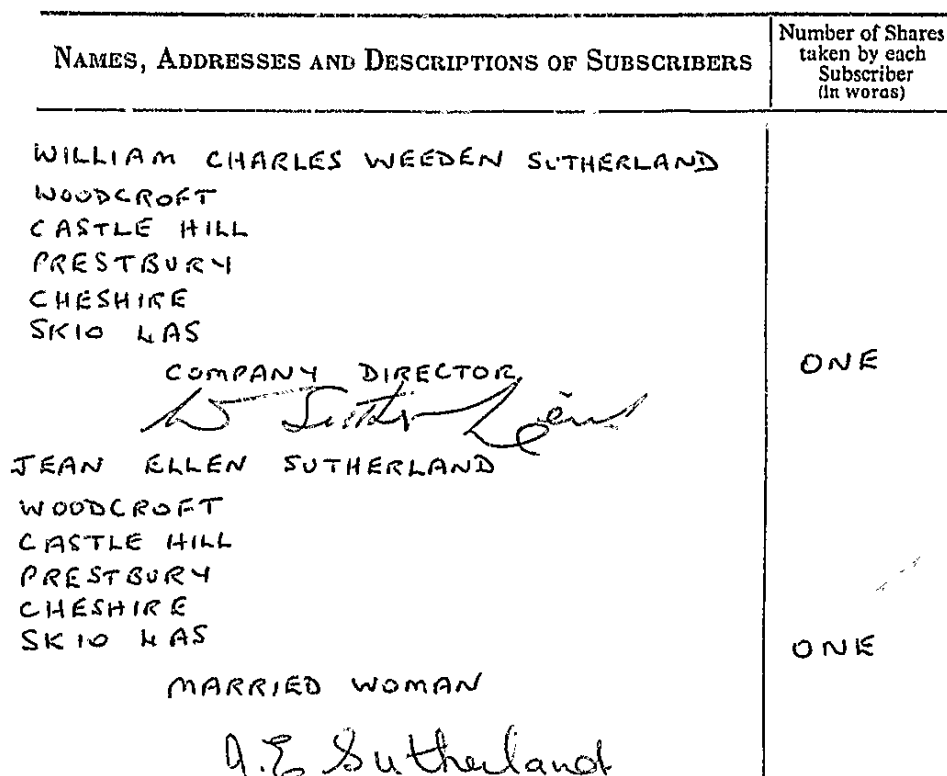 NAMES, ADDRESSES AND DESCRIPTIONS OF SUBSCRIBERS
Number of Shares
taken by each
Subscriber
(in words)
WILLIAM CHARLES WEEDEN SUTHERLAND
WOODCROFT
CASTLE HILL
PRESTBURY
CHESHIRE
SK10 4AS
COMPANY DIRECTOR
ONE
W Sutherland
JEAN ELLEN SUTHERLAND
WOODCROFT
CASTLE HILL
PRESTBURY
CHESHIRE
SK10 4AS
ONE
MARRIED WOMAN
J.E Sutherland